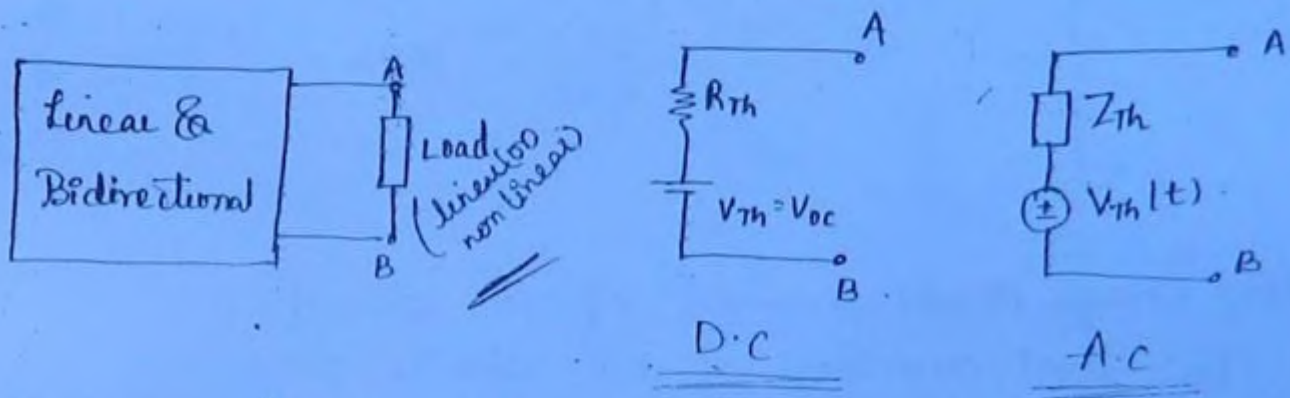 Linear &
Bidirectional
A
Load
(linear (or)
non linear)
B
A
RTh
VTh = VOC
B
D.C
A
ZTh
VTh(t)
B
A.C